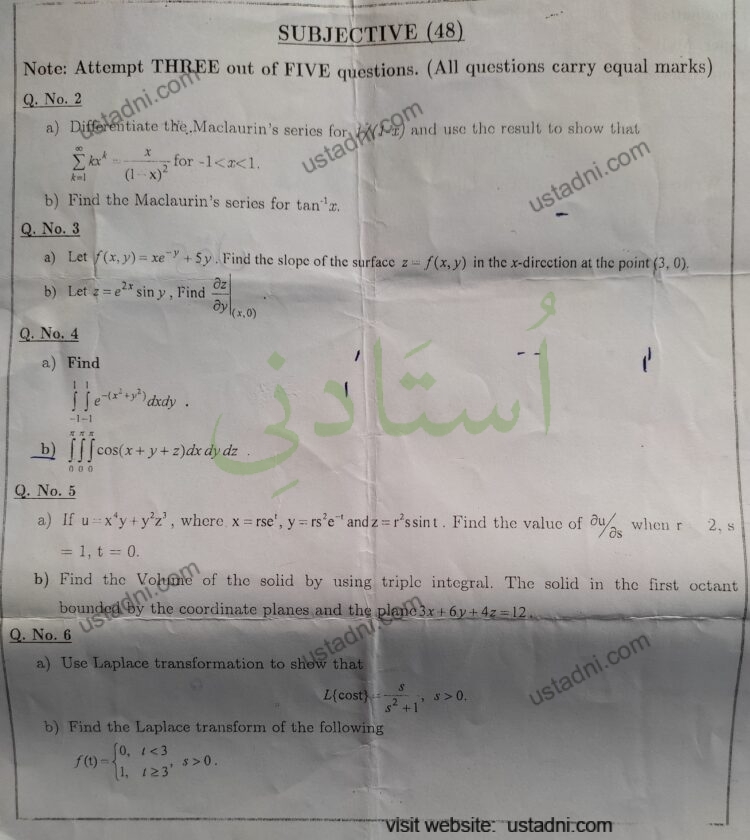 SUBJECTIVE (48)
Note: Attempt THREE out of FIVE questions. (All questions carry equal marks)
Q. No. 2
a) Differentiate the Maclaurin's series for 1/(1-x) and use the result to show that
∞
∑ kx^k = x/(1-x)² for -1<x<1.
k=1
b) Find the Maclaurin's series for tan⁻¹x.
Q. No. 3
a) Let f(x,y) = xe^(-y) + 5y. Find the slope of the surface z = f(x,y) in the x-direction at the point (3, 0).
b) Let z = e^(2x) sin y, Find ∂z/∂y|(x,0) .
Q. No. 4
a) Find
∫_{-1}^{1} ∫_{-1}^{1} e^{-(x²+y²)} dxdy .
b) ∫_0^π ∫_0^π ∫_0^π cos(x + y + z)dx dy dz .
Q. No. 5
a) If u = x⁴y + y²z³, where x = rse^t, y = rs²e^(-t) and z = r²s sin t. Find the value of ∂u/∂s when r 2, s
= 1, t = 0.
b) Find the Volume of the solid by using triple integral. The solid in the first octant
bounded by the coordinate planes and the plane 3x + 6y + 4z = 12.
Q. No. 6
a) Use Laplace transformation to show that
L{cost} = s/(s² + 1), s > 0.
b) Find the Laplace transform of the following
f(t) = {0, t < 3
1, t ≥ 3 , s > 0.
ustadni.com
ustadni.com
ustadni.com
اُستادنی
ustadni.com
ustadni.com
ustadni.com
visit website: ustadni.com